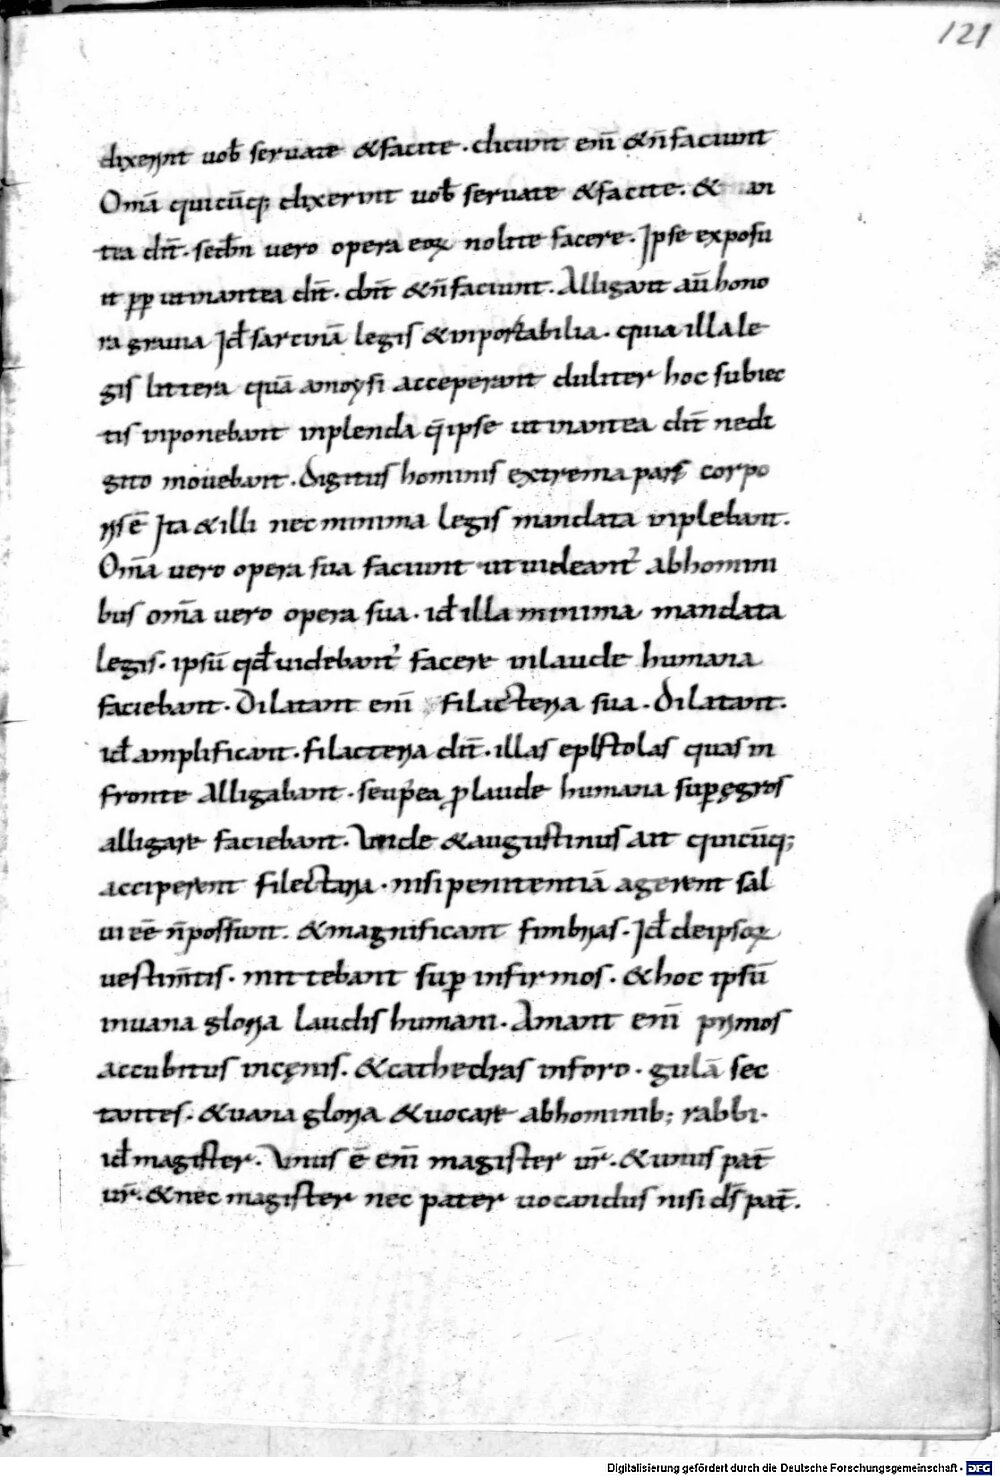 121
dixerint uob̄ seruate &facite · dicunt enī &n̄faciunt
Omā quicūcꝗ; dixerint uob̄ seruate &facite. & an
tea dn̄t · sec̄dm uero opera eoꝝ nolite facere. Ipse exposu
it ꝓꝓ utinantea dn̄t · dn̄t &n̄faciunt. Alligant aū hono
ra grauia Id̄ sarcinā legis &inportabilia · quia illa le
gis littera quā amoysi acceperant duliter hoc subiec
tis inponebant inplenda q̄ ipse ut inantea dn̄t nedi
gito mouebant. Digitus hominis extrema pars corpo
ris ē Ita &illi nec minima legis mandata inplebant.
Om̄a uero opera sua faciunt ut uideant᷑ abhomini
bus om̄a uero opera sua · id̄ illa minima mandata
legis · ipsū qd̄ uidebant᷑ facere inlaude humana
faciebant. Dilatant enī filacteria sua. Dilatant.
id̄ amplificant. filacteria dn̄t · illas eplstolas quas in
fronte alligabant · seup̄ea ꝓ laude humana suꝑ ęgros
alligare faciebant. Unde &augustinus ait quicūq;
acciperent filectaria · nisi penitentiā agerent sal
ui eē n̄possunt. &magnificant fimbrias. Id̄ deipsoꝝ
uestim̄tis · mittebant suꝑ infirmos. &hoc ipsū
inuana gloria laudis humani. Amant enī primos
accubitus incęnis. &cathedras inforo · gulā sec
tantes. &uana gloria &uocare abhominib; rabbi.
id̄ magister. Unus ē enī magister ur̄. &unus pat̄
ur̄. &nec magister nec pater uocandus nisi ds̄ pat̄.
Digitalisierung gefördert durch die Deutsche Forschungsgemeinschaft - DFG